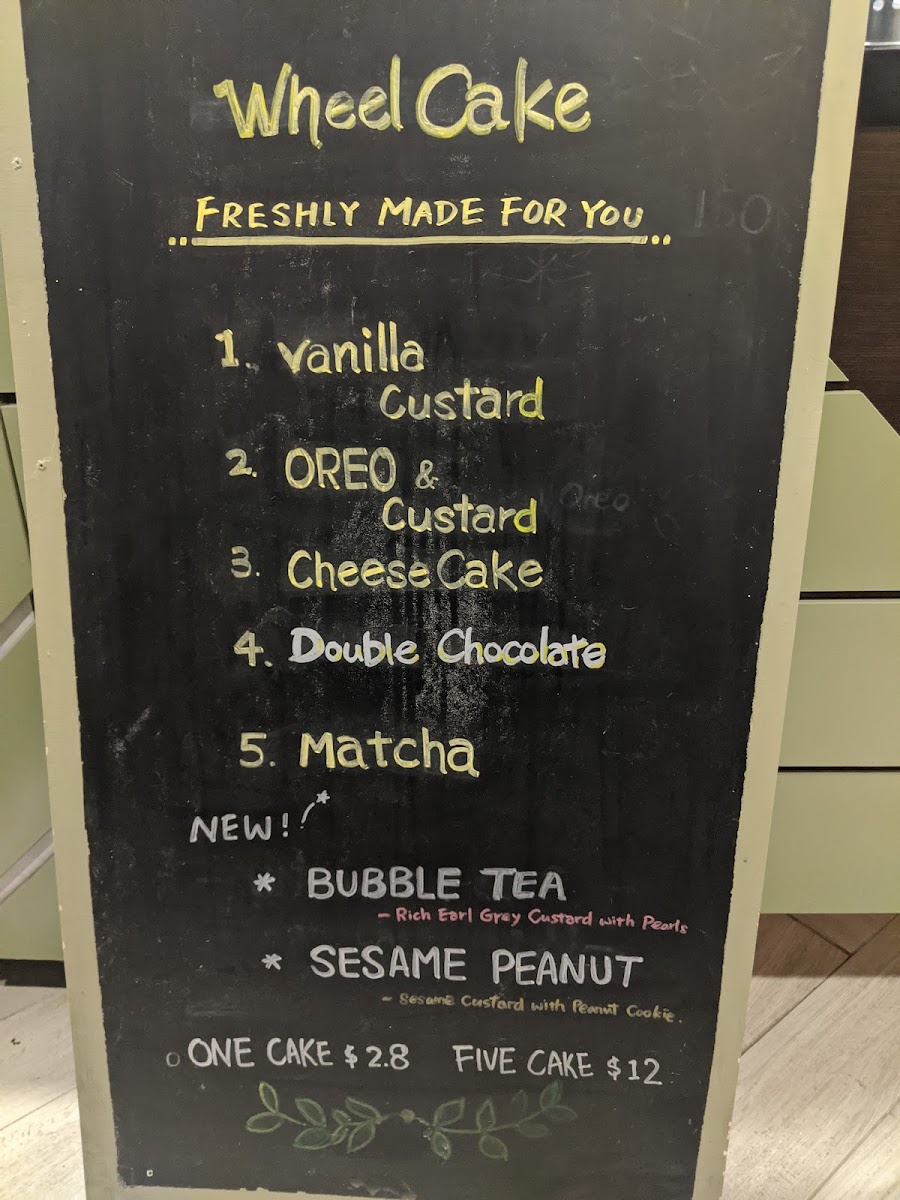 Wheel Cake
FRESHLY MADE FOR YOU
150
1. vanilla
Custard
2. OREO &
Custard
Oreo
3. Cheese Cake
4. Double Chocolate
5. Matcha
NEW!
* BUBBLE TEA
- Rich Earl Grey Custard with Pearls
* SESAME PEANUT
- Sesame Custard with Peanut Cookie.
ONE CAKE $2.8 FIVE CAKE $12